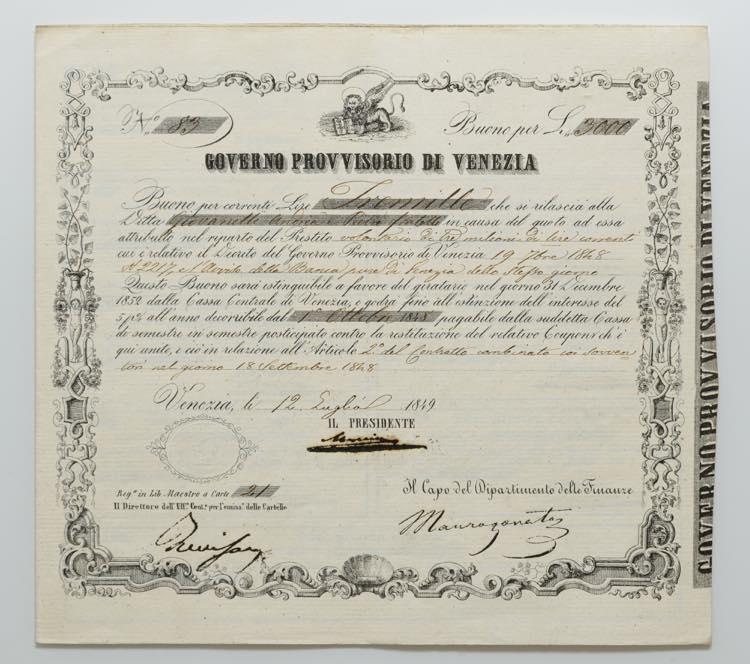 N.º 83
Buono per L. 3000
GOVERNO PROVVISORIO DI VENEZIA
Buono per correnti Lire Tremille che si rilascia alla
Ditta Giovanelli Andrea in causa del quoto ad essa
attribuito nel riparto del Prestito volontario di tre milioni di lire correnti
cui è relativo il Decreto del Governo Provvisorio di Venezia 19 7bre 1848
della Banca di Venezia dello stesso giorno
Questo Buono sarà estinguibile a favore del giratario nel giorno 31 Dicembre
1852 dalla Cassa Centrale di Venezia, e godrà fino all'estinzione dell'interesse del
5 p% all'anno decorribile dal 1º Ottobre 1848 pagabile dalla suddetta Cassa
di semestre in semestre posticipato contro la restituzione del relativo Coupon ch'è
qui unito, e ciò in relazione all'Articolo 2º del Contratto combinato coi sovven-
tori nel giorno 18 Settembre 1848
Venezia, li 12 Luglio 1849
IL PRESIDENTE
Manin
Reg.º in Lib. Maestro a Carte 21
Il Capo del Dipartimento delle Finanze
Il Direttore dell'Uff.º Cent.e per l'emiss.e delle Cartelle
Maurogonato
GOVERNO PROVVISORIO DI VENEZIA